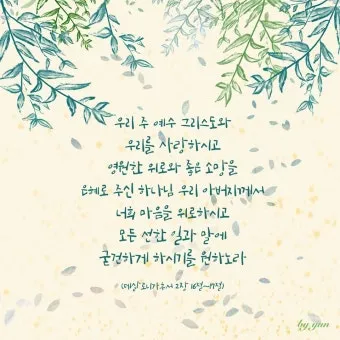 우리 주 예수 그리스도와
우리를 사랑하시고
영원한 위로와 좋은 소망을
은혜로 주신 하나님 우리 아버지께서
너희 마음을 위로하시고
모든 선한 일과 말에
굳건하게 하시기를 원하노라
(데살로니가후서 2장 16절~17절)
by yun